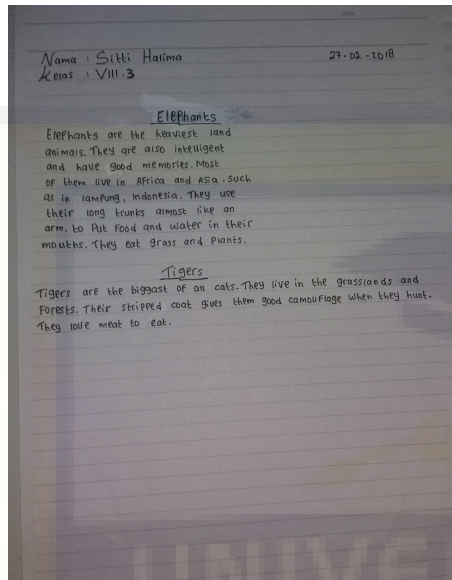 Nama : Sitti Halima 27-02-2018
Kelas : VIII.3
Elephants
Elephants are the heaviest land
animals. They are also intelligent
and have good memories. Most
of them live in Africa and Asia. Such
as in lampung, Indonesia. They use
their long trunks almost like an
arm. to put food and water in their
mouths. They eat grass and plants.
Tigers
Tigers are the biggast of all cats. They live in the grasslands and
Forests. Their stripped coat gives them good camouflage when they hunt.
They love meat to eat.